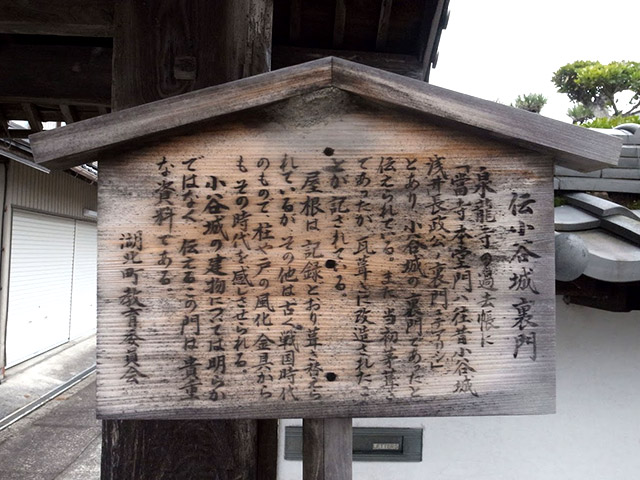 伝小谷城裏門
泉龍寺の過去帳に
「當寺本堂門ハ往昔小谷城
浅井長政公ノ裏門ナリシ」
とあり、小谷城の裏門であったと
伝えられている。また、当初茅葺き
であったが、瓦葺きに改造されたこ
とが記されている。
屋根は、記録どおり葺き替えら
れているが、その他は古く戦国時代
のもので、柱や戸の風化、金具から
も、その時代を感じさせられる。
小谷城の建物については明らか
ではなく、伝えるこの門は、貴重
な資料である。
湖北町教育委員会